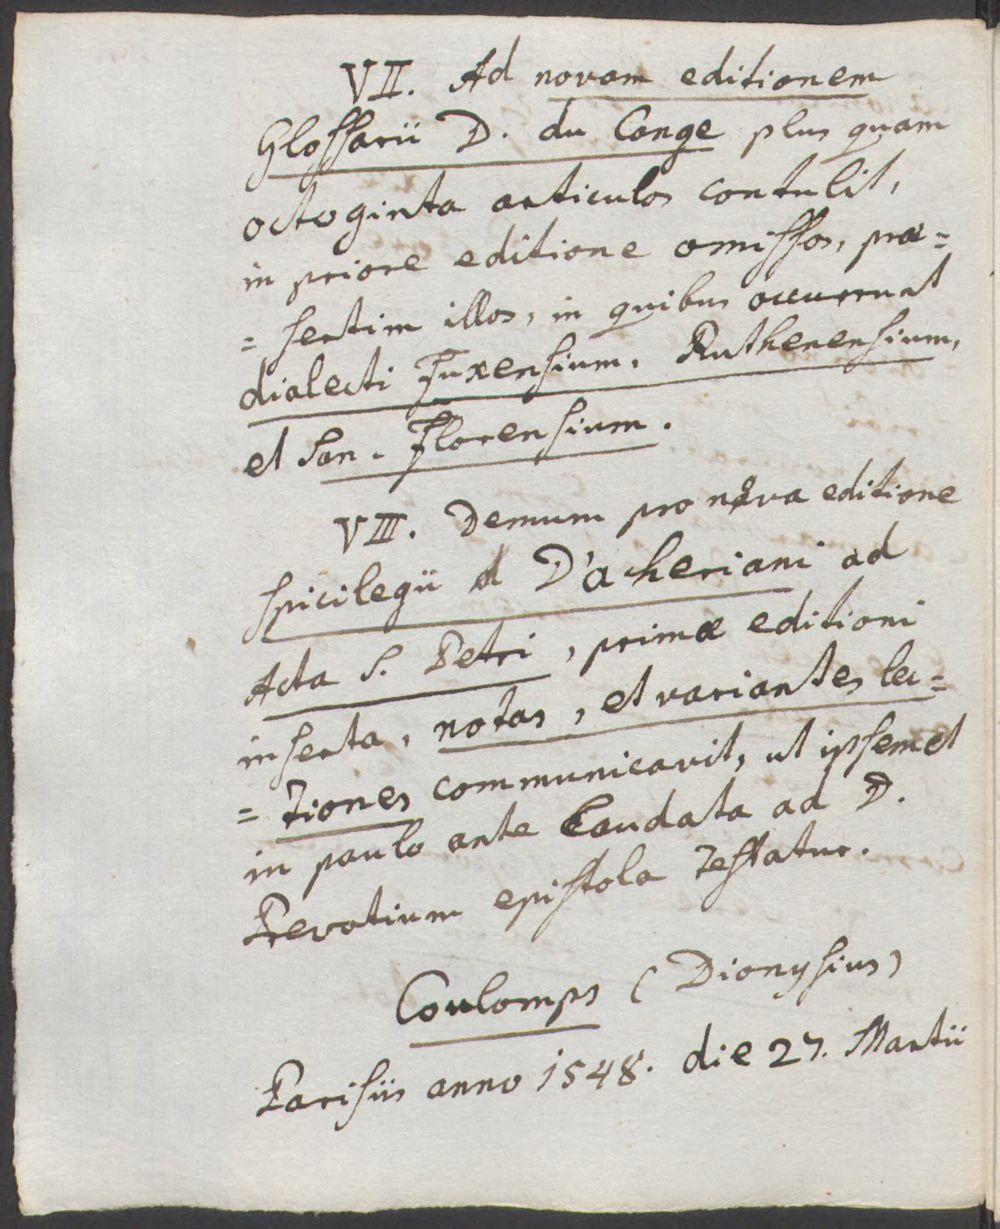 VII. Ad novam editionem
Glossarii D. du Cange plus quam
octoginta articulos contulit,
in priore editione omissos, præ=
= sertim illos, in quibus occurrunt
dialecti Fuxensium, Ruthenensium,
et San-Florensium.
VIII. Demum pro nova editione
spicilegii D'acheriani ad
Acta S. Petri, primæ editioni
inserta, notas, et variantes lec=
= tiones communicavit, ut ipsemet
in paulo ante laudata ad D.
Prevotium epistola testatur.
Coulomps (Dionysius)
Parisiis anno 1548. die 27. Martii